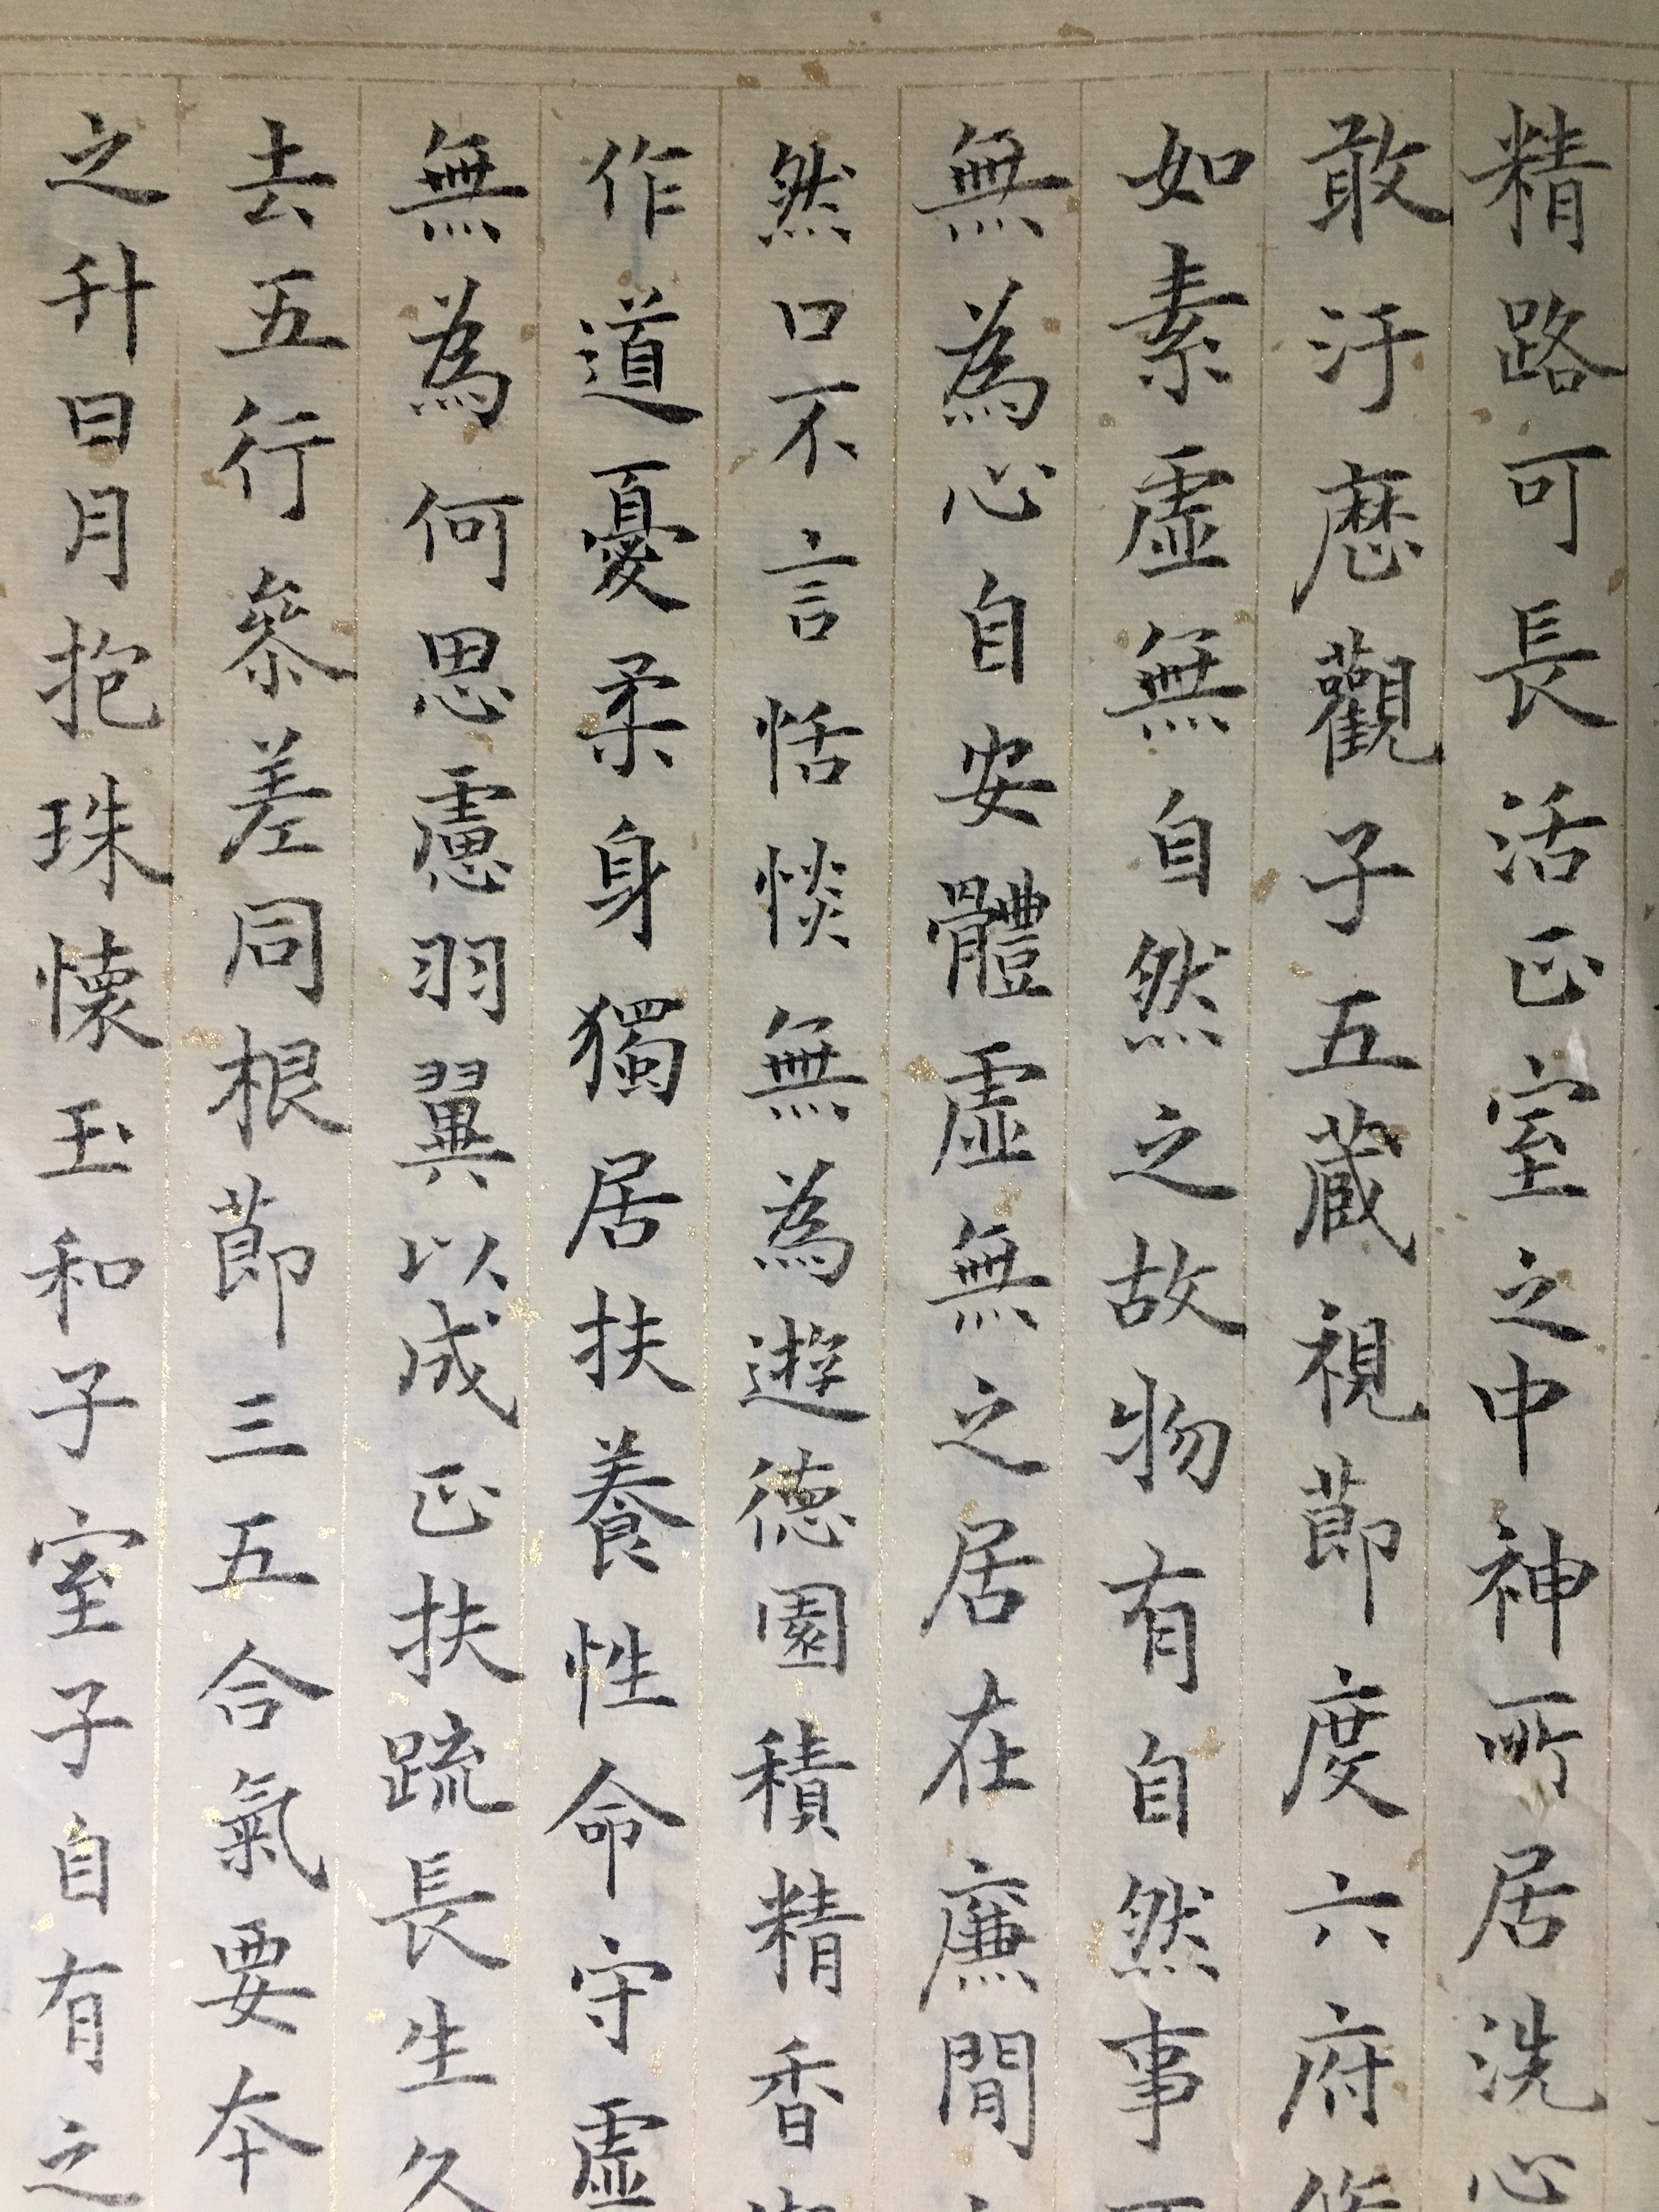 精路可長活正室之中神所居洗心
敢汙歷觀子五藏視節度六府修
如素虛無自然之故物有自然事不
無為心自安體虛無之居在廉間
然口不言恬惔無為遊德園積精香
作道憂柔身獨居扶養性命守虛
無為何思慮羽翼以成正扶疏長生久
去五行參差同根節三五合氣要本
之升日月抱珠懷玉和子室子自有之